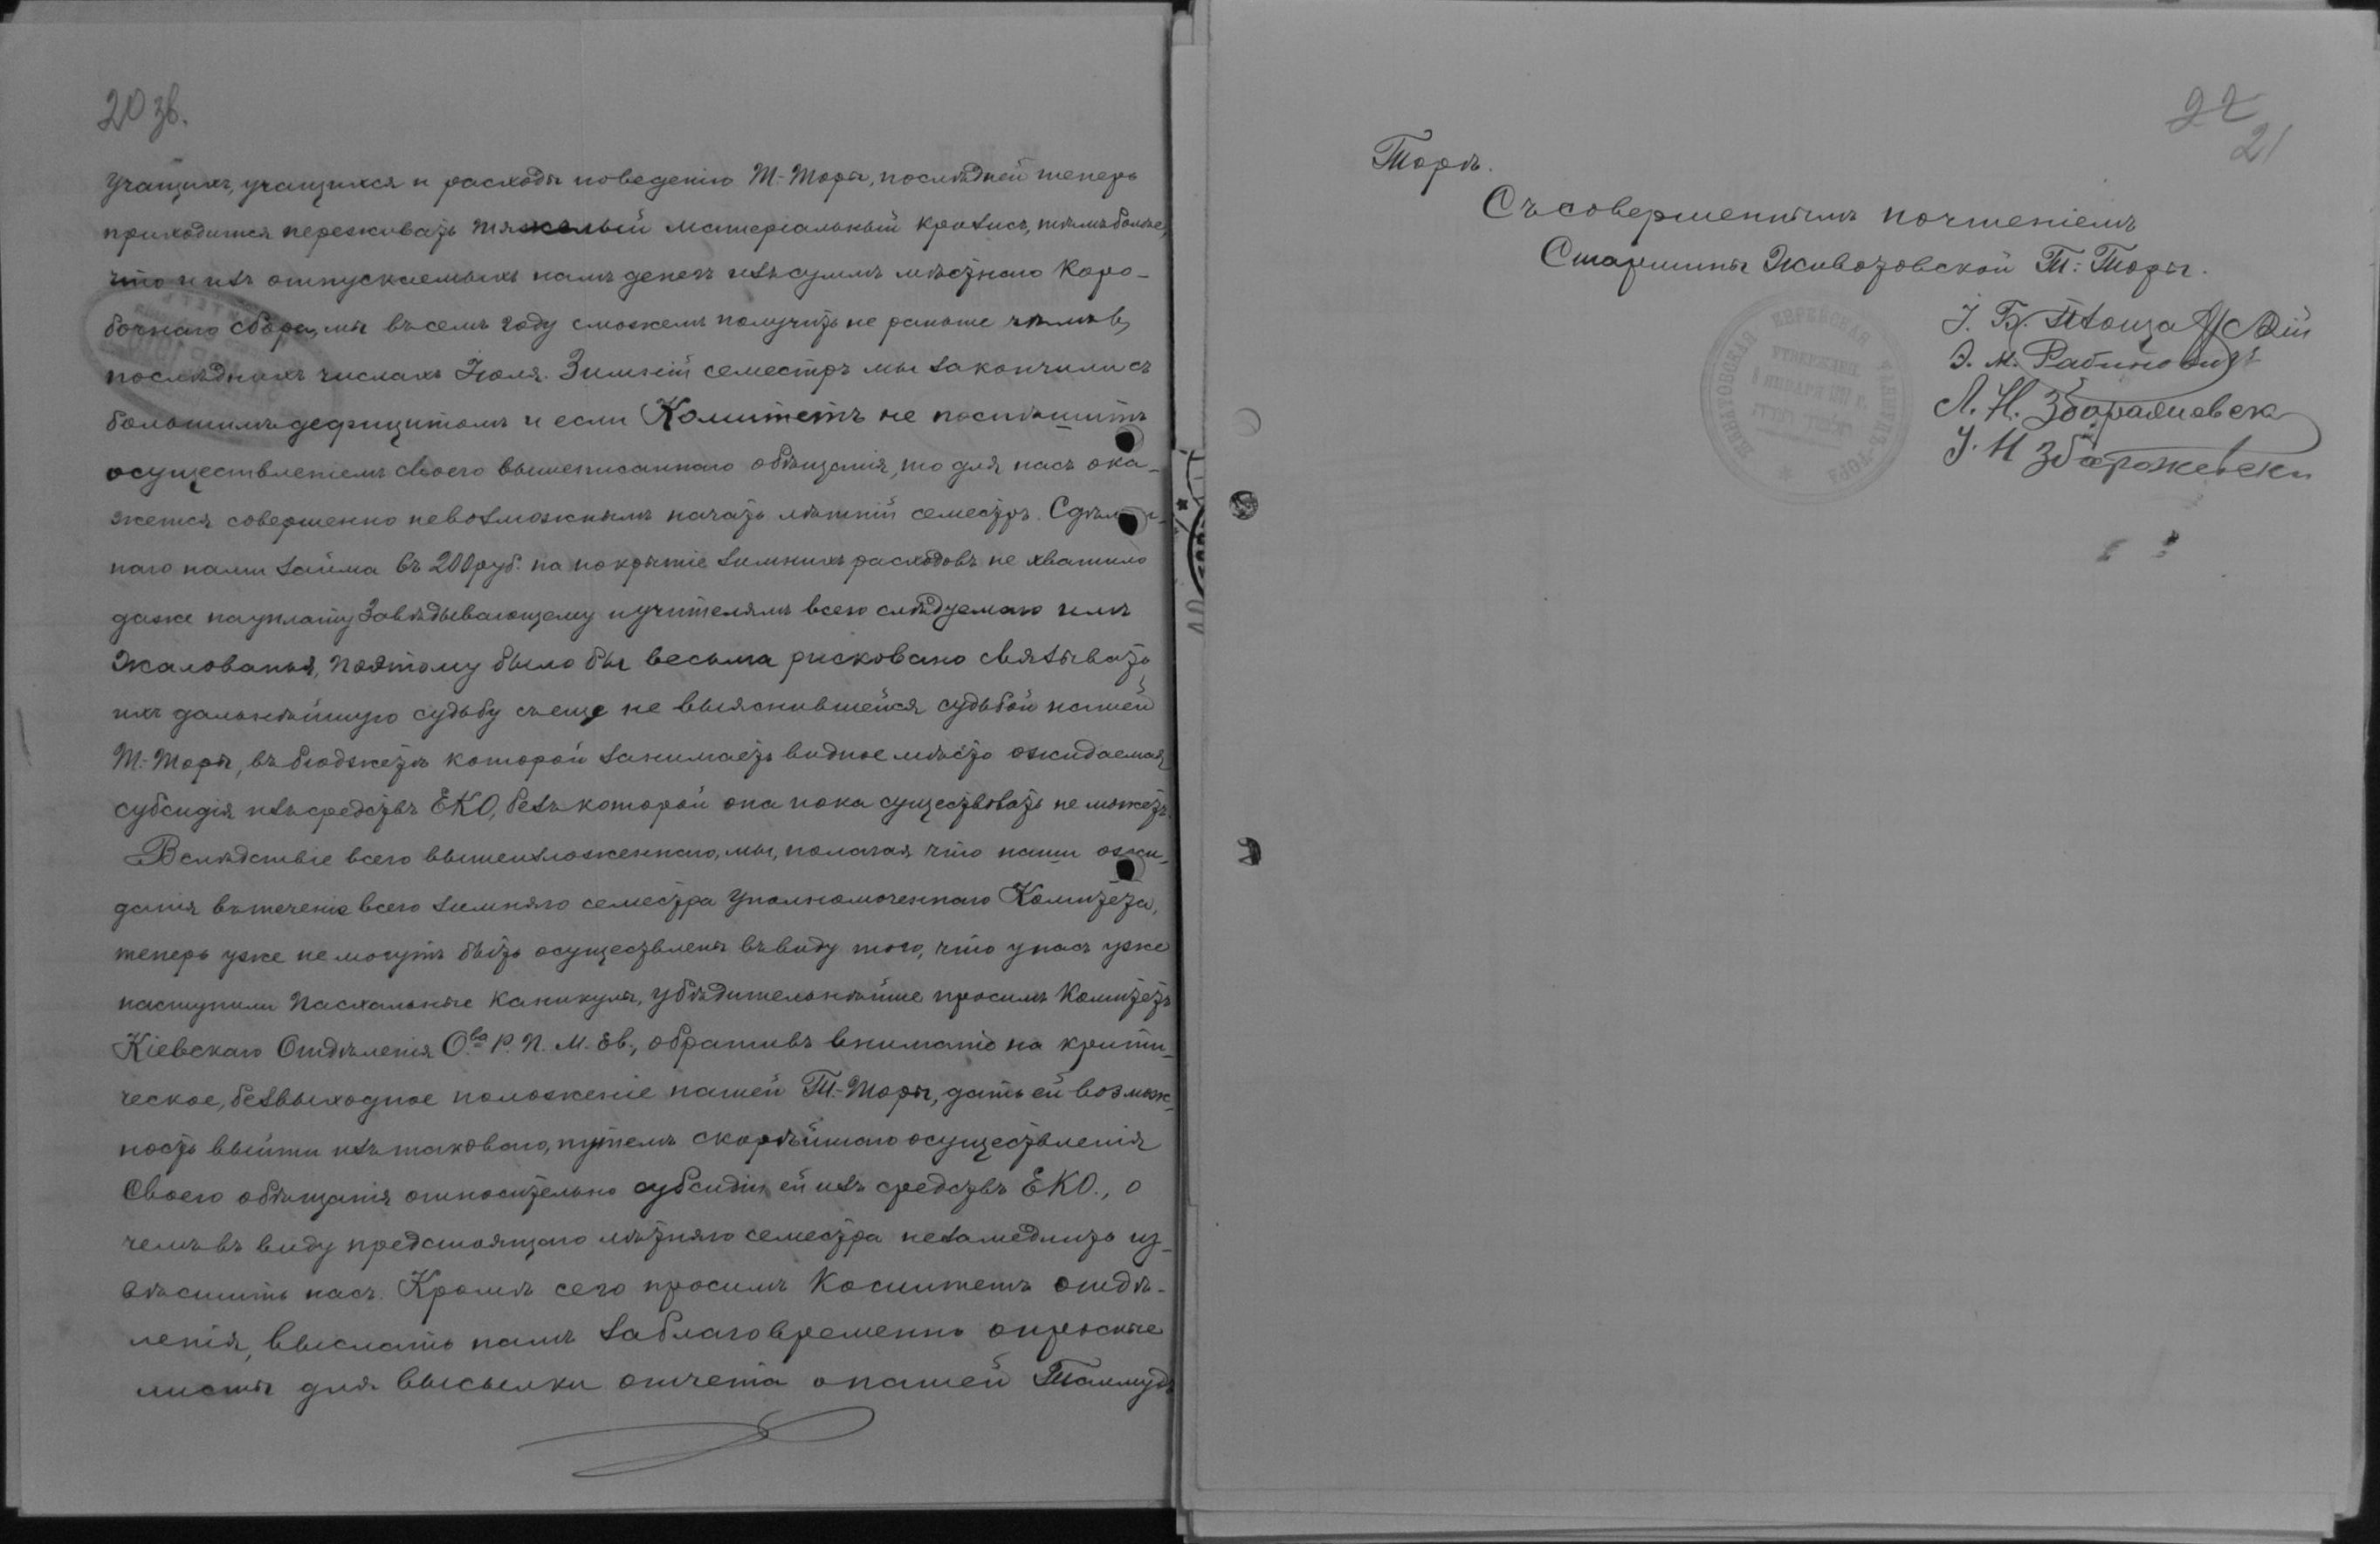 20 зв.
учащихъ, учащихся и расходы поведенію Т.-Торы, послѣдней теперь
приходится переживать тяжелый матеріальный кризисъ, тѣмъ болѣе,
что и изъ отпускаемыхъ намъ денегъ изъ суммъ мѣстнаго Коро-
бочнаго сбора, мы въ семъ году сможемъ получить не раньше чѣмъ въ
послѣднихъ числахъ Іюля. Зимній семестръ мы закончили съ
большимъ дефицитомъ и если Комитетъ не поспѣшитъ
осуществленіемъ своего вышеписаннаго обѣщанія, то для насъ ока-
жется совершенно невозможнымъ начать лѣтній семестръ. Сдѣлан-
наго нами займа въ 200 руб. на покрытіе зимнихъ расходовъ не хватило
даже на уплату Завѣдывающему и учителямъ всего слѣдуемаго имъ
жалованья, поэтому было бы весьма рисковано связывать
ихъ дальнѣйшую судьбу съ еще не выяснившейся судьбой нашей
Т.-Торы, въ бюджетѣ которой занимаетъ видное мѣсто ожидаемая
субсидія изъ средствъ ЕКО, безъ которой она пока существовать не можетъ.
Вслѣдствіе всего вышеизложеннаго, мы, полагая что наши ожи-
данія въ теченіе всего зимняго семестра уполномоченнаго Комитета,
теперь уже не могутъ быть осуществлены въ виду того, что у насъ уже
наступили Пасхальные каникулы, убѣдительнѣйше просимъ Комитетъ
Кіевскаго Отдѣленія О.ва Р. П. М. Ев., обративъ вниманіе на крити-
ческое, безвыходное положеніе нашей Т.-Торы, дать ей возмож-
ность выйти изъ таковаго, путемъ скорѣйшаго осуществленія
своего обѣщанія относительно субсидіи ей изъ средствъ ЕКО., о
чемъ въ виду предстоящаго лѣтняго семестра незамедлить из-
вѣстить насъ. Кромѣ сего просимъ Комитетъ отдѣ-
ленія, выслать намъ заблаговременно опросные
листы для высылки отчета о нашей Талмудъ
22
21
Торѣ.
Съ совершеннымъ почтеніемъ
Старшины Животовской Т.-Торы.
ЖИВОТОВСКАЯ ЕВРЕЙСКАЯ ТАЛМУДЪ-ТОРА
УТВЕРЖДЕН.
І. Б.
Э. М. Рабиновичъ
Л. Н.
І. И Збарожевски